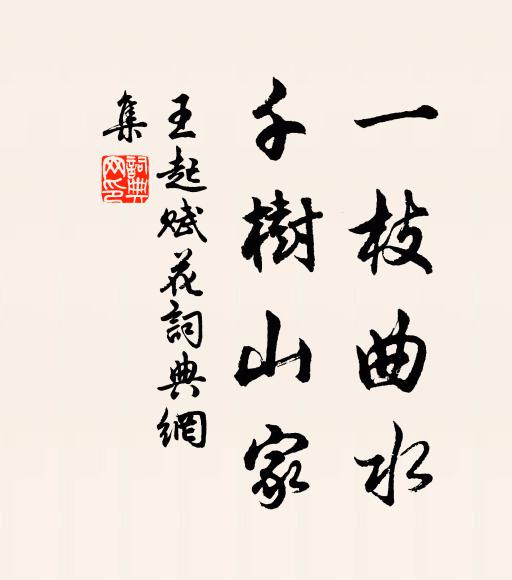 一枝曲水
千樹山家
王起賦花詞典網
集
詞典
网印